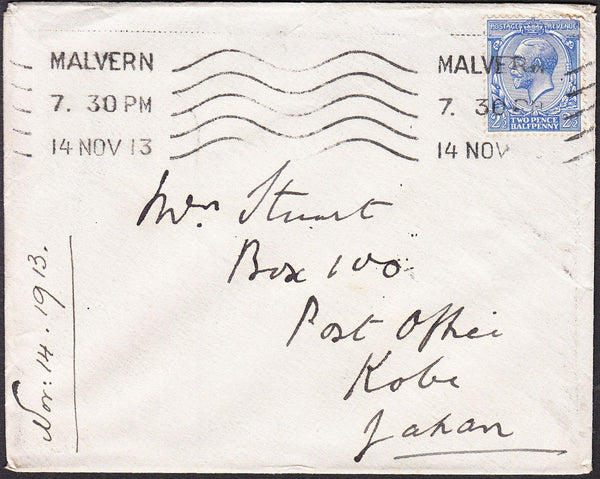 POSTAGE REVENUE
MALVERN
7. 30 PM
14 NOV 13
MALVERN
7. 30 PM
14 NOV
2½ TWO PENCE HALFPENNY 2½
Mrs Stuart
Box 100
Post Office
Kobe
Japan
Nov: 14. 1913.